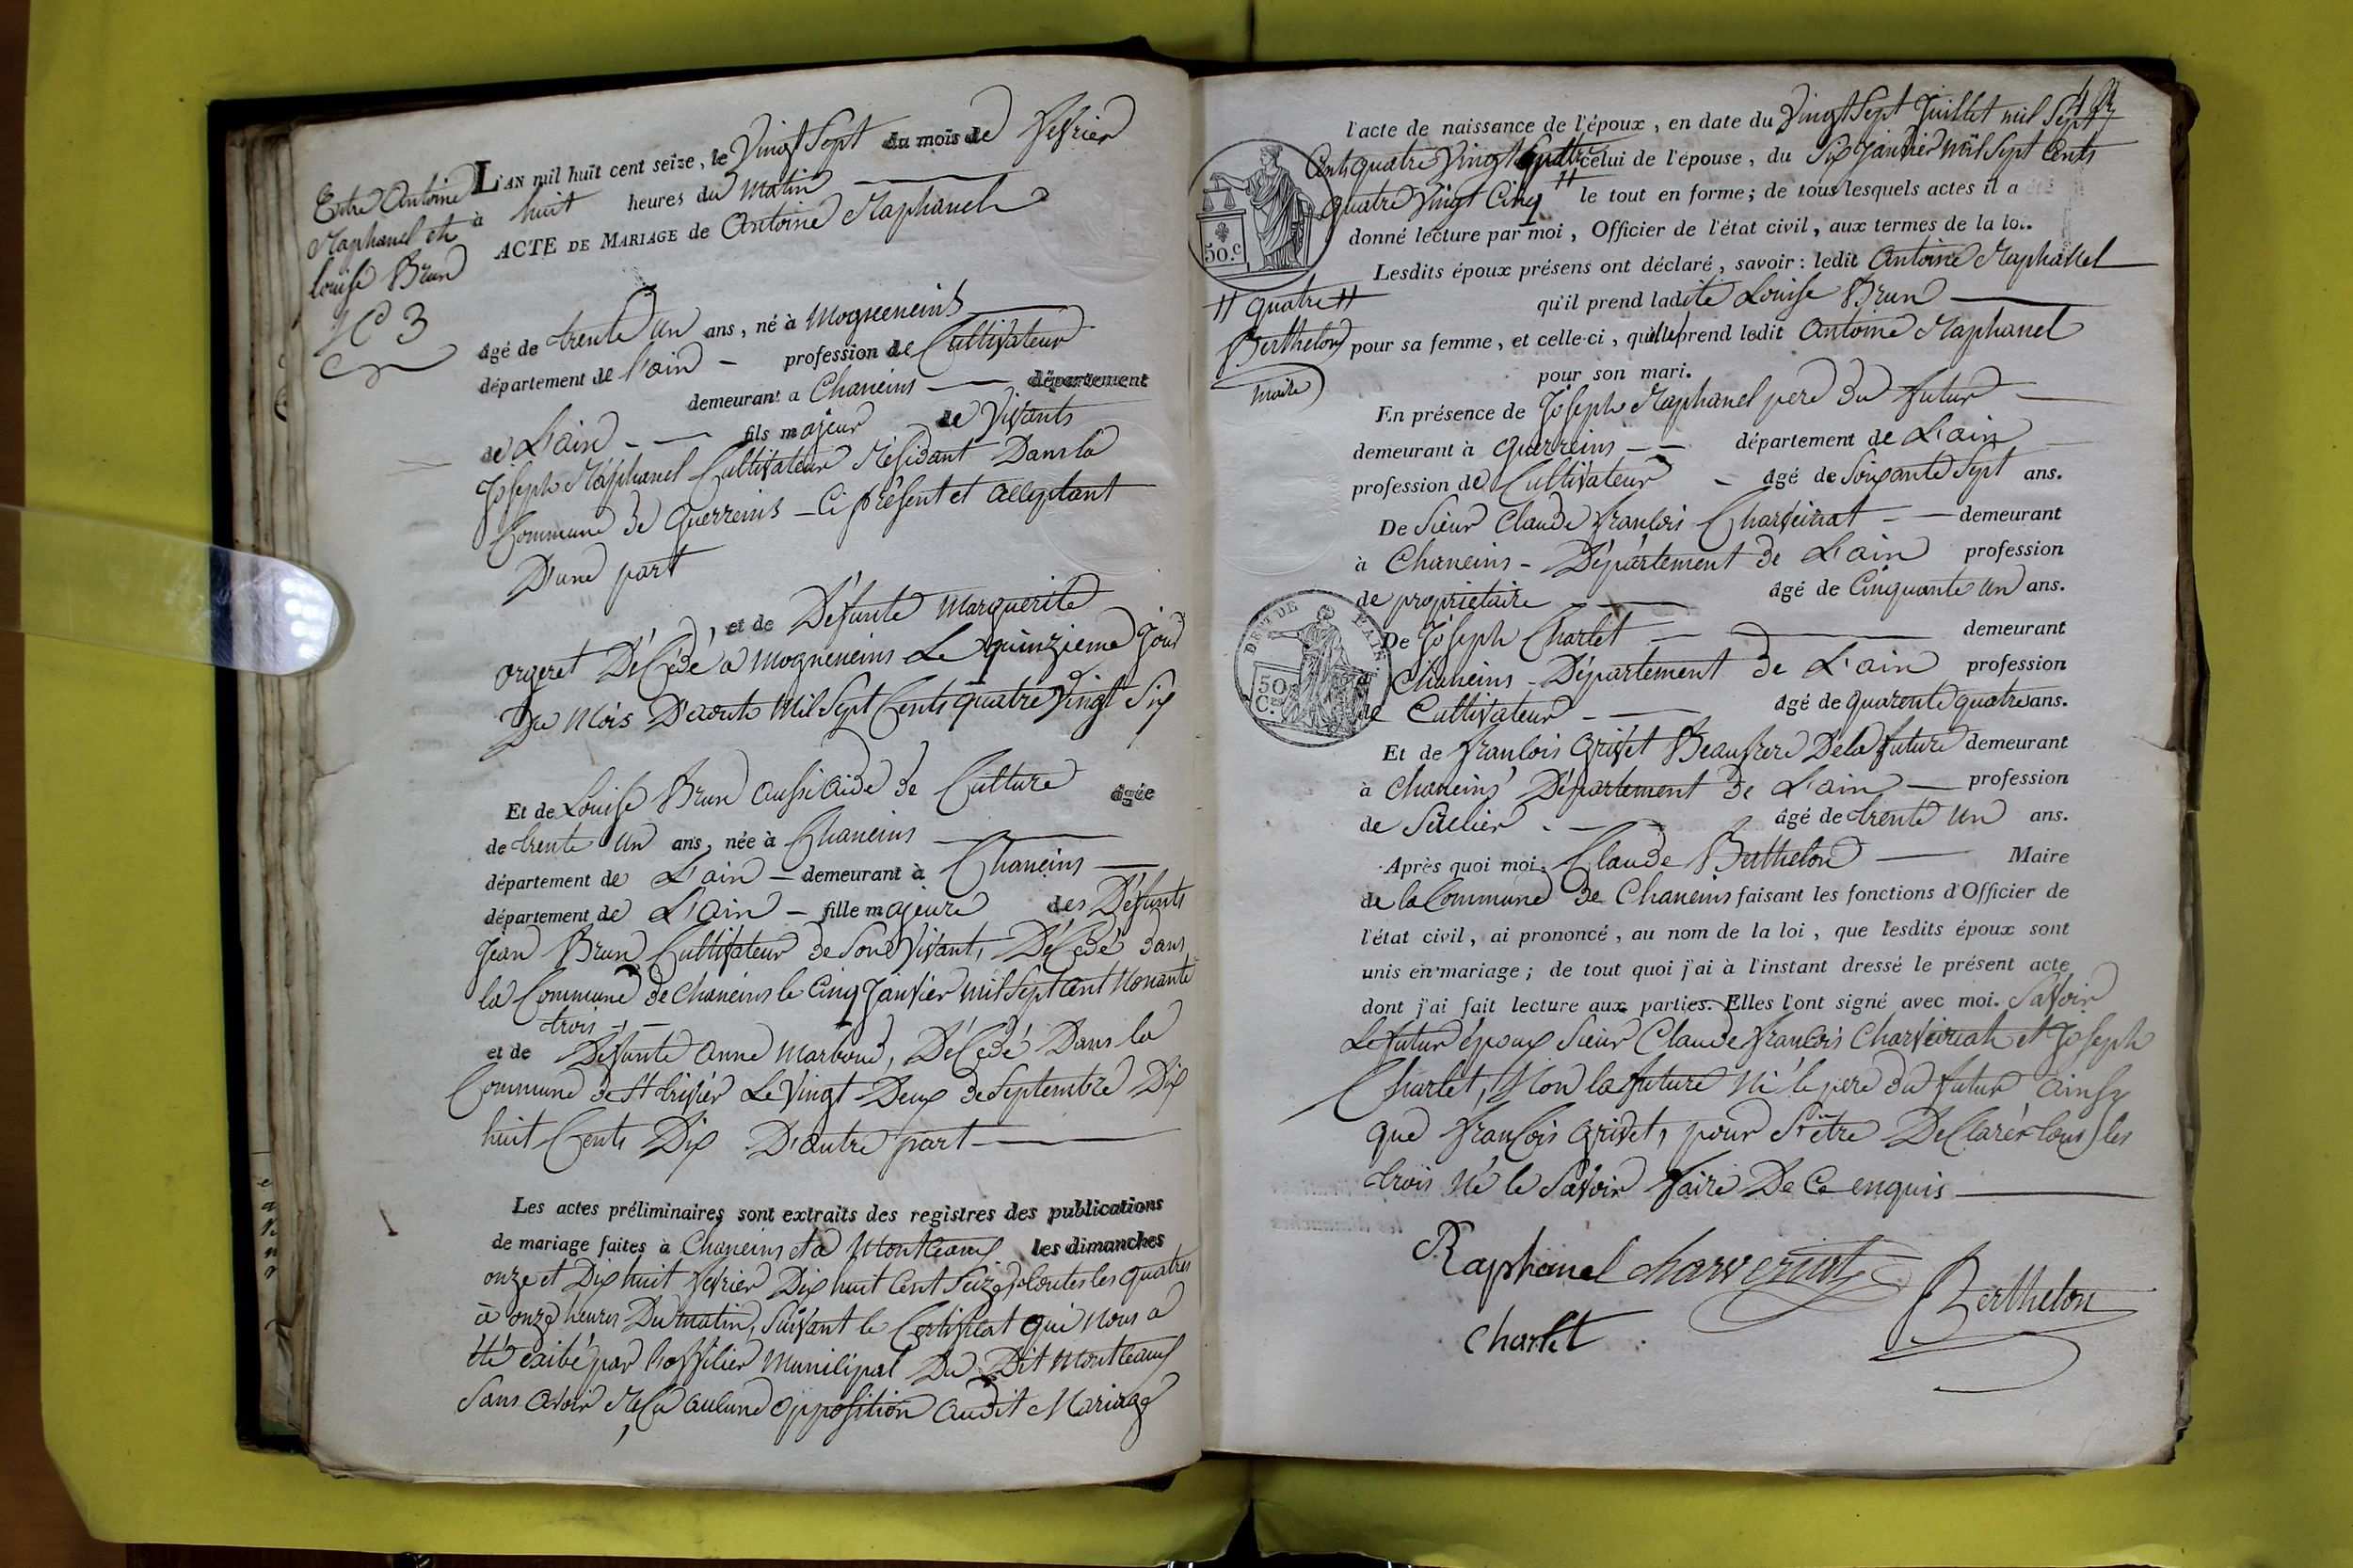 Entre Antoine
Raphanel et
Louise Brun
N° 3
L'AN mil huit cent seize, le Vingt Sept du mois de fevrier
à huit heures du Matin
ACTE DE MARIAGE de Antoine Raphanel
âgé de trente un ans, né à Mogneneins
département de l'ain - profession de Cultivateur
demeurant a Chaneins département
de L'ain fils majeur de Vivants
Joseph Raphanel Cultivateur Résidant Dans la
Commune de Guerreins - Ci présent et acceptant
D'une part
, et de Défunte Marguerite
orgeret Décédé a Mogneneins Le quinzieme Jour
Du Mois D'aoute Mil Sept Cents quatre Vingt Six
Et de Louise Brun aussi aide de Culture âgée
de trente un ans, née à Chaneins
département de L'ain - demeurant à Chaneins
département de L'ain - fille majeure des Défunts
Jean Brun Cultivateur de Son Vivant, Décédé dans
la Commune de Chaneins le Cinq Janvier mil Sept Cent Nonante
trois
et de Défunte Anne Marboud, Décédé Dans la
Commune de St trivier Le Vingt Deux de Septembre Dix
huit Cents Dix D'autre part
Les actes préliminaires sont extraits des registres des publications
de mariage faites à Chaneins et à Montceaux les dimanches
onze et Dix huit fevrier Dix huit Cent Seize, toutes les quatres
à onze heures Du matin, Suivant le Certificat qui nous a
été exibé par l'officier Municipal Du Dit Montceaux
Sans avoir Reçu aucune opposition audit Mariage
l'acte de naissance de l'époux, en date du Vingt Sept Juillet mil Sept
Cents quatre Vingt celui de l'épouse, du Six Janvier mil Sept Cents
quatre Vingt Cinq // le tout en forme; de tous lesquels actes il a
donné lecture par moi, Officier de l'état civil, aux termes de la loi.
50.c
// quatre //
Berthelon
maire
Lesdits époux présens ont déclaré, savoir: ledit Antoine Raphanel
qu'il prend ladite Louise Brun
pour sa femme, et celle-ci, qu'elle prend ledit Antoine Raphanel
pour son mari.
En présence de Joseph Raphanel pere du futur
demeurant à Guerreins département de L'ain
profession de Cultivateur - âgé de Soixante Sept ans.
De Sieur Claude François Charveiriat demeurant
à Chaneins - Département de L'ain profession
de proprietaire âgé de Cinquante un ans.
DEPT DE L'AIN
50 C.
De Joseph Charlet demeurant
à Chaneins - Département de L'ain profession
de Cultivateur âgé de quarente quatre ans.
Et de François Grivet Beaufrere De la future demeurant
à Chaneins Département de L'ain profession
de Sellier âgé de trente un ans.
Après quoi moi, Claude Berthelon Maire
de la Commune de Chaneins faisant les fonctions d'Officier de
l'état civil, ai prononcé, au nom de la loi, que lesdits époux sont
unis en mariage; de tout quoi j'ai à l'instant dressé le présent acte
dont j'ai fait lecture aux parties. Elles l'ont signé avec moi. Savoir
Le futur époux Sieur Claude François Charveiriat et Joseph
Charlet, Non la future Ni le pere du futur ainsy
que François Grivet, pour S'être Declarés tous les
trois Ne le Savoir faire De Ce enquis
Raphanel charveriat
Berthelon
charlet